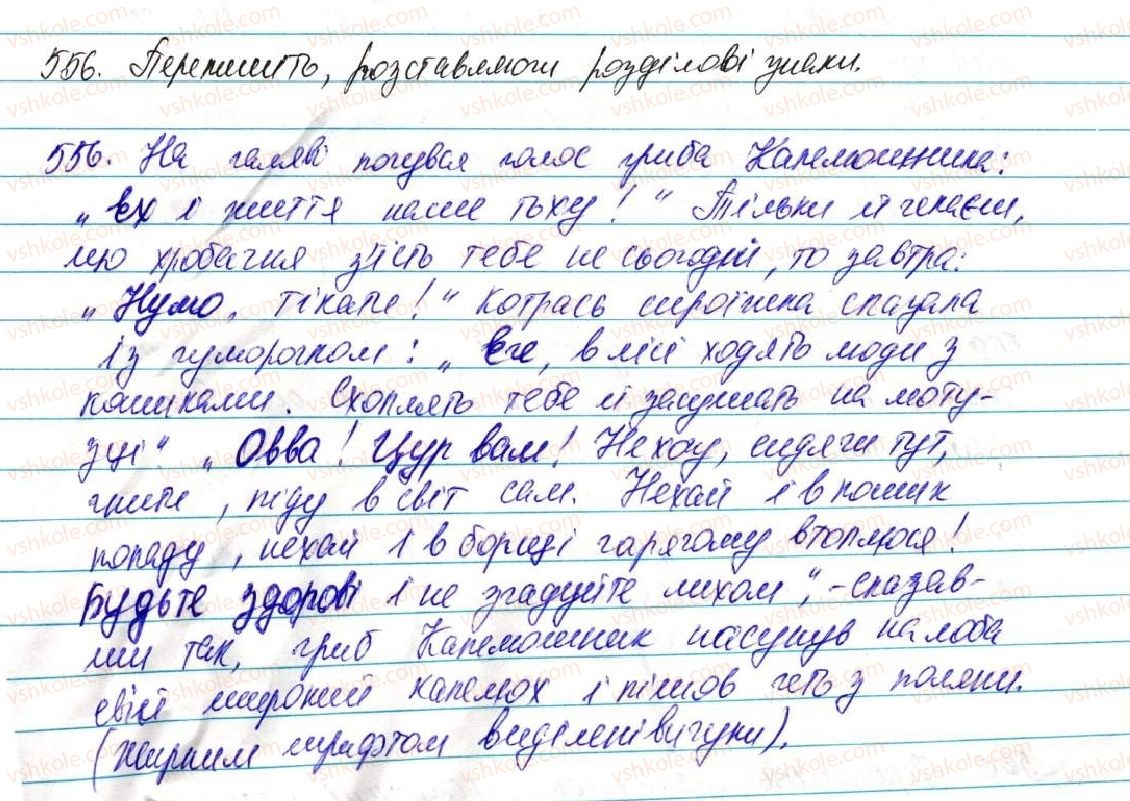 556. Перепишіть, розставляючи розділові знаки.
556. На галяві почувся голос гриба Капелюшника:
„Ех і життя наше тьху!“ Тільки й чекаєш,
що хробачня з'їсть тебе не сьогодні, то завтра:
„Нумо, тікати!“ Котрась сироїжка сказала
із гуморочком: „Еге, в лісі ходять люди з
кошиками. Схоплять тебе й засушать на моту-
зці“ „Овва! Цур вам! Не хочу, сидячи тут,
гнити, піду в світ сам. Нехай і в кошик
попаду, нехай і в борщі гарячому втоплюся!
Будьте здорові і не згадуйте лихом“, - сказав-
ши так, гриб Капелюшник насунув на лоба
свій широкий капелюх і пішов геть з поляни.
(жирним шрифтом виділені вигуки).